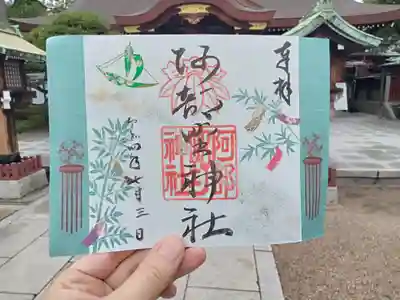 奉拝
阿部野神社
阿部
神社
令和四年七月三日